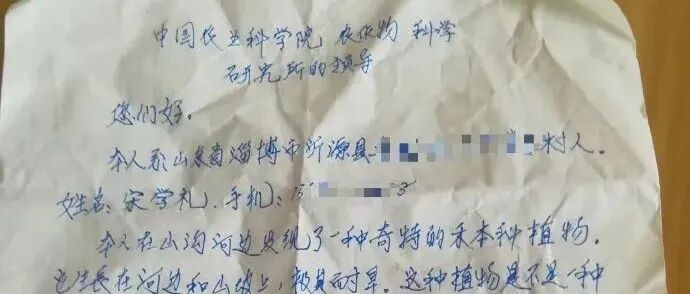 中国农业科学院 农作物 科学
研究所的领导
您们好。
本人系山东省淄博市沂源县 村人。
姓名：宋学礼．手机：15 3
本人在山沟河边发现了一种奇特的禾本种植物，
它生长在河边和山坡上，极其耐旱。这种植物是不是一种